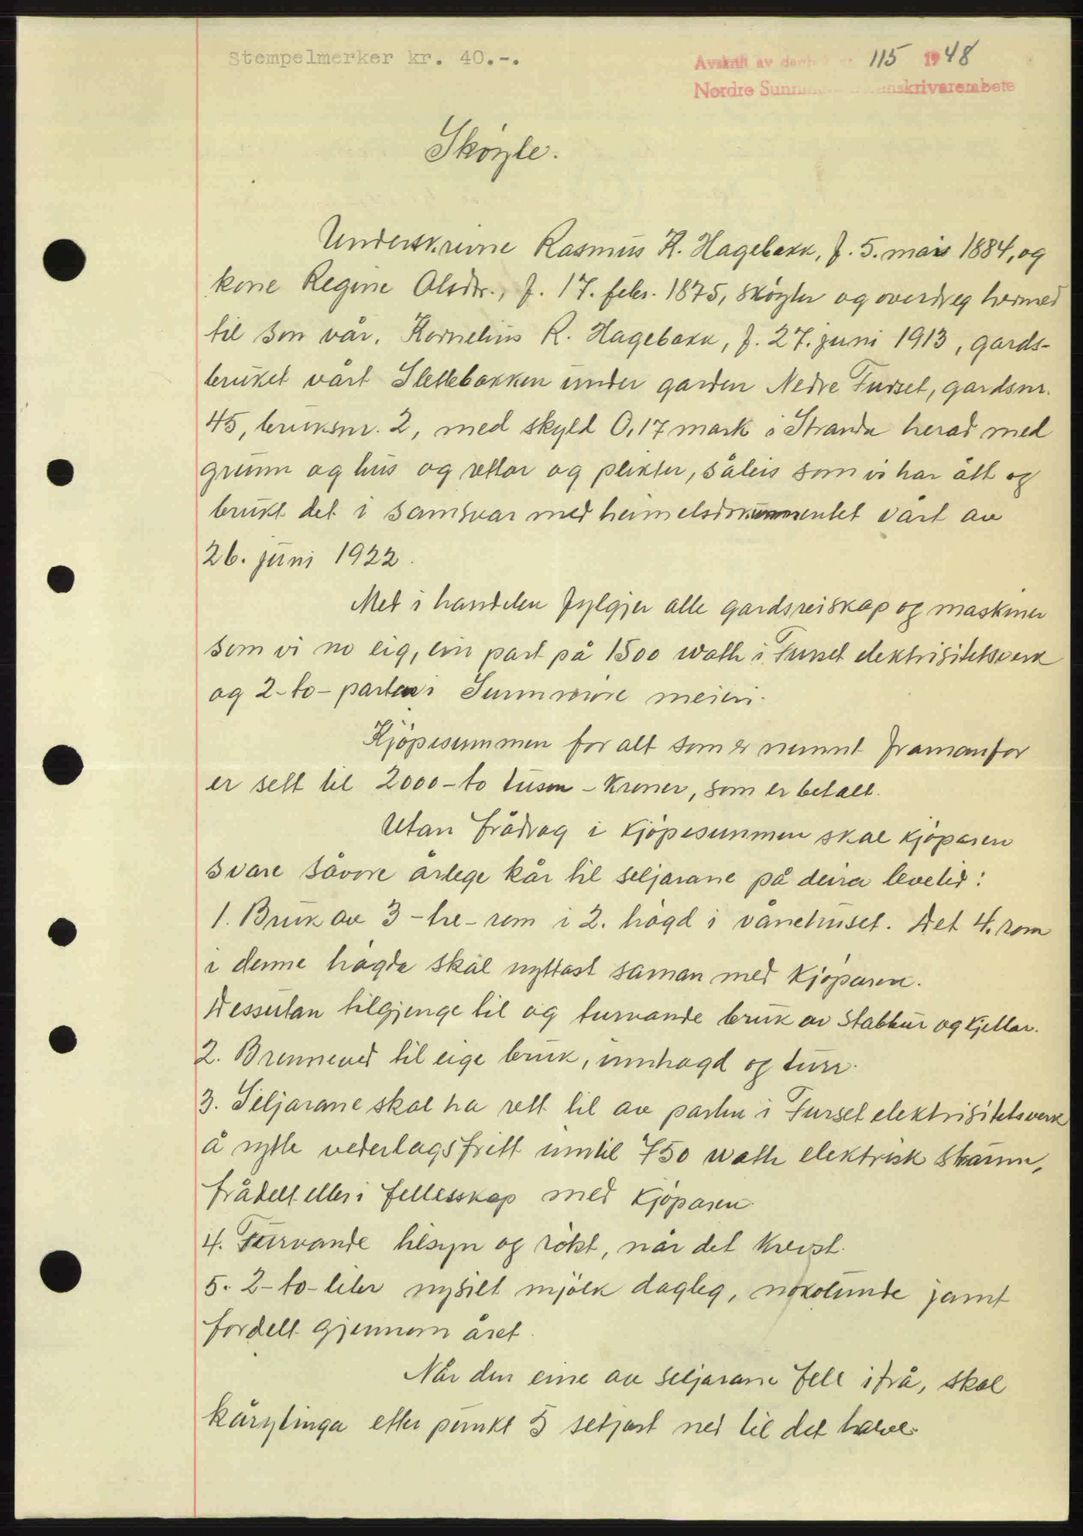 Stempelmerker kr. 40.-.
Avskrift av dagb nr. 115 1948
Nordre Sunnm skrivarembete
Skøyte.
Underskrivne Rasmus K. Hagebakk, f. 5. mars 1884, og
kone Regine Olsdtr., f. 17. febr. 1875, skøyter og overdreg hermed
til son vår, Kornelius R. Hagebakk, f. 27. juni 1913, gards-
bruket vårt Slettebakken under garden Nedre Furset, gardsnr.
45, bruksnr. 2, med skyld 0,17 mark i Stranda herad med
grunn og hus og rettar og plikter, såleis som vi har ått og
brukt det i samsvar med heimelsdokumentet vårt av
26. juni 1922.
Med i handelen fylgjer alle gardsreiskap og maskiner
som vi no eig, ein part på 1500 wath i Furset elektrisitetsverk
og 2-to-partar i Sunnmøre meieri.
Kjöpesummen for alt som er nemnt framanfor
er sett til 2000-to tusen-kroner, som er betalt.
Utan frådrag i kjöpesummen skal kjöparen
svare såvore årlege kår til seljarane på deira levetid:
1. Bruk av 3-tre-rom i 2. högd i vånehuset. Det 4. rom
i denne högda skal nyttast saman med kjöparen.
Dessutan tilgjenge til og turvande bruk av stabbur og kjellar.
2. Brenneved til eige bruk, innhogd og turr.
3. Seljarane skal ha rett til av parten i Furset elektrisitetsverk
å nytte vederlagsfritt inntil 750 wath elektrisk straum,
frådelt eller i fellesskap med kjöparen.
4. Turvande tilsyn og rökt, når det krevst.
5. 2-to-liter nysilt mjölk dagleg, nokolunde jamt
fordelt gjennom året.
Når den eine av seljarane fell ifrå, skal
kårytinga etter punkt 5 setjast ned til det halve.